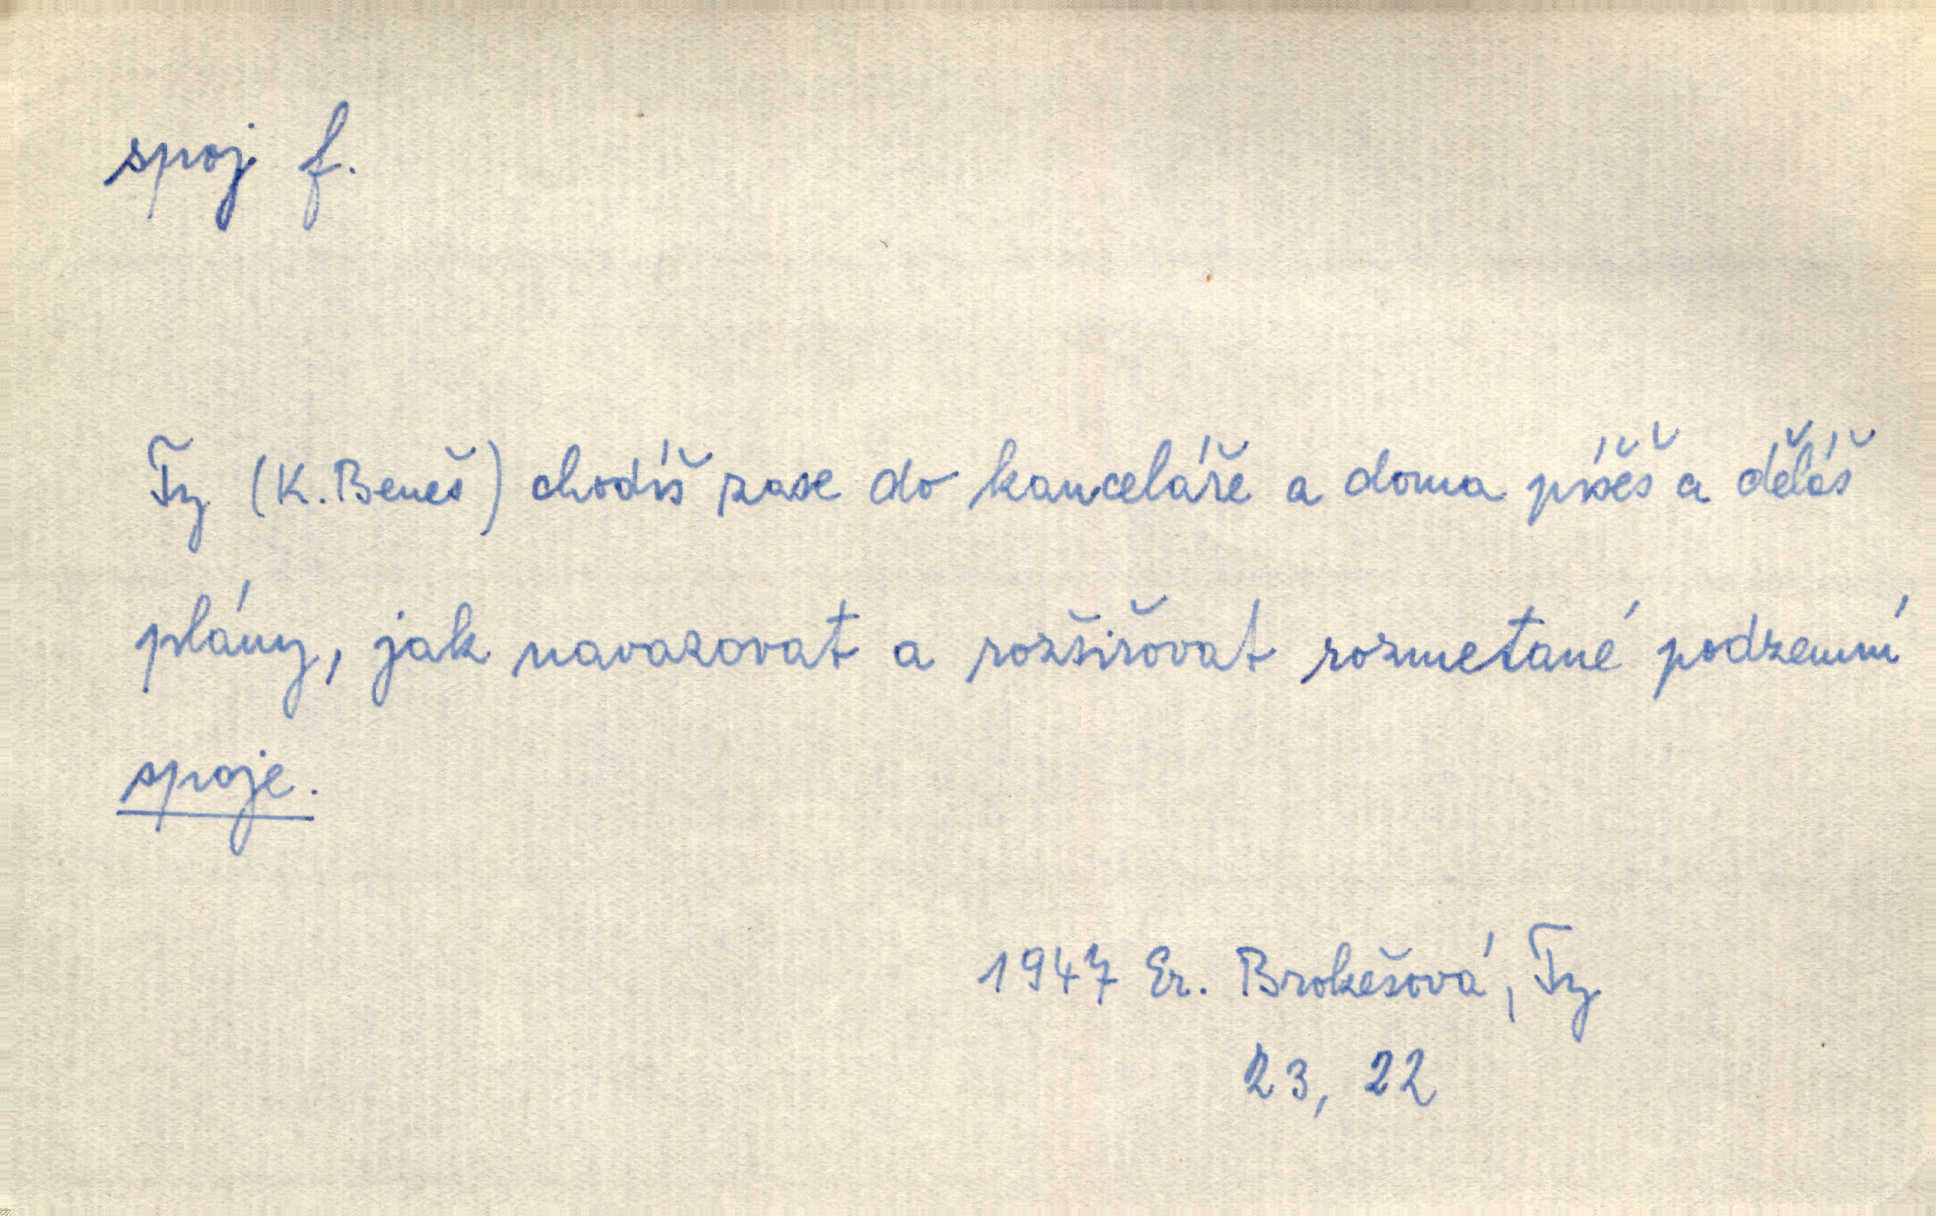 spoj f.
Ty (K. Beneš) chodíš zase do kanceláře a doma píšeš a děláš
plány, jak navazovat a rozšiřovat rozmetané podzemní
spoje.
1947 Er. Brokešová, Ty
23, 22